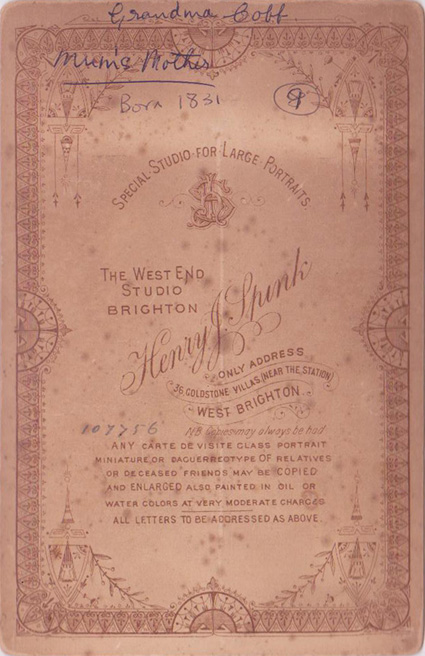 Grandma Cobb.
Mum's Mother
Born 1831
SPECIAL STUDIO FOR LARGE PORTRAITS
THE WEST END
STUDIO
BRIGHTON
Henry J. Spink
ONLY ADDRESS
36, GOLDSTONE VILLAS, (NEAR THE STATION)
WEST BRIGHTON.
107756
NB Copies may always be had
ANY CARTE DE VISITE GLASS PORTRAIT
MINIATURE OR DAGUERREOTYPE OF RELATIVES
OR DECEASED FRIENDS MAY BE COPIED
AND ENLARGED ALSO PAINTED IN OIL OR
WATER COLORS AT VERY MODERATE CHARGES
ALL LETTERS TO BE ADDRESSED AS ABOVE.